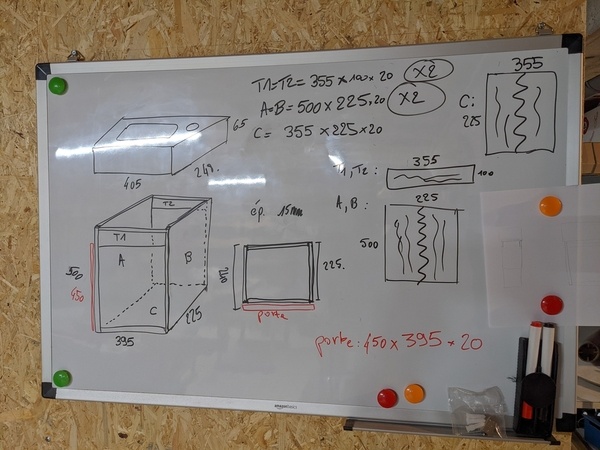 T1=T2= 355 x 100 x 20 x2
A=B= 500 x 225 x 20 x2
C= 355 x 225 x 20
355
C:
225
65
249.
405
T1, T2 :
355
100
A, B :
225
500
ép. 15mm
T2
T1
A
B
C
500
450
395
225
240
225.
porte
porte: 450 x 395 x 20